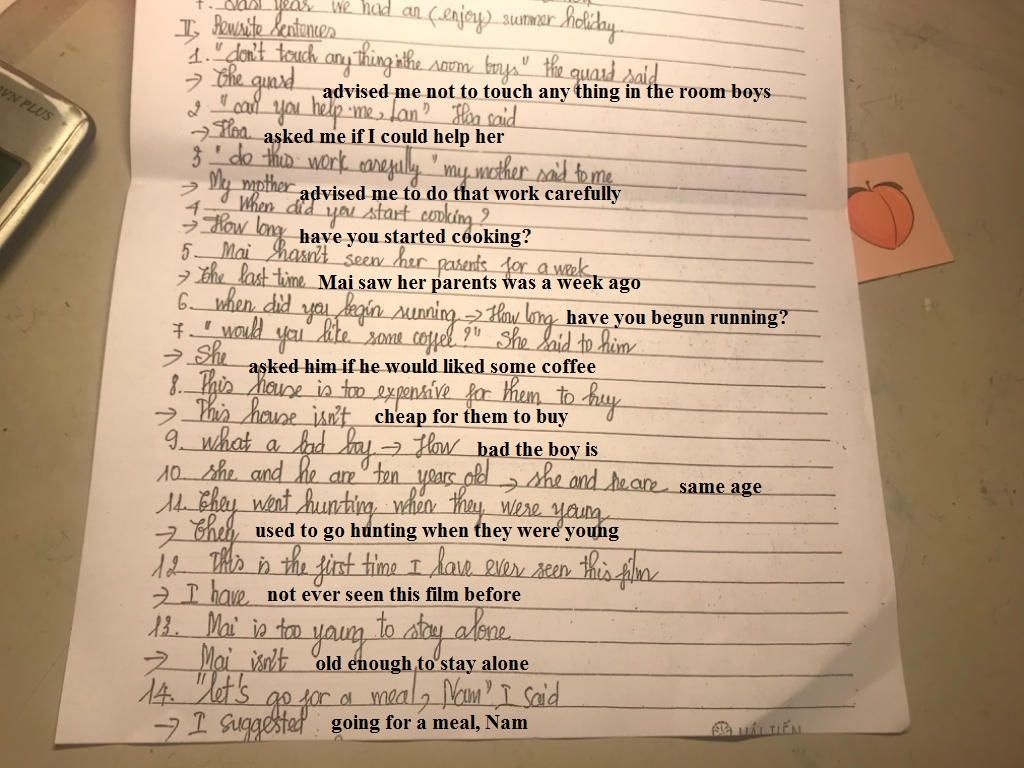 7. Last year we had an (enjoy) summer holiday.
II, Rewrite Sentences
1. "don't touch any thing in the room boys" the guard said
→ The guard advised me not to touch any thing in the room boys
2 "can you help me, Lan" Hoa said
→ Hoa asked me if I could help her
3 "do this work carefully" my mother said to me
→ My mother advised me to do that work carefully
4 When did you start cooking?
→ How long have you started cooking?
5. Mai hasn't seen her parents for a week
→ The last time Mai saw her parents was a week ago
6. when did you begin running → How long have you begun running?
7 "would you like some coffee?" She said to him
→ She asked him if he would liked some coffee
8. This house is too expensive for them to buy
→ This house isn't cheap for them to buy
9. what a bad boy → How bad the boy is
10. she and he are ten years old → she and he are same age
11. They went hunting when they were young
→ They used to go hunting when they were young
12 This is the first time I have ever seen this film
→ I have not ever seen this film before
13. Mai is too young to stay alone
→ Mai isn't old enough to stay alone
14. "let's go for a meal, Nam" I said
→ I suggested going for a meal, Nam
HẢI TIẾN
VN PLUS